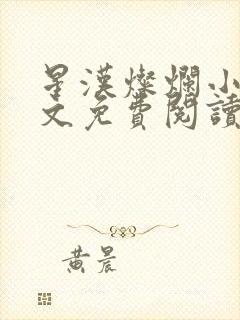 星漢燦爛小
文免費閱讀
黃晨